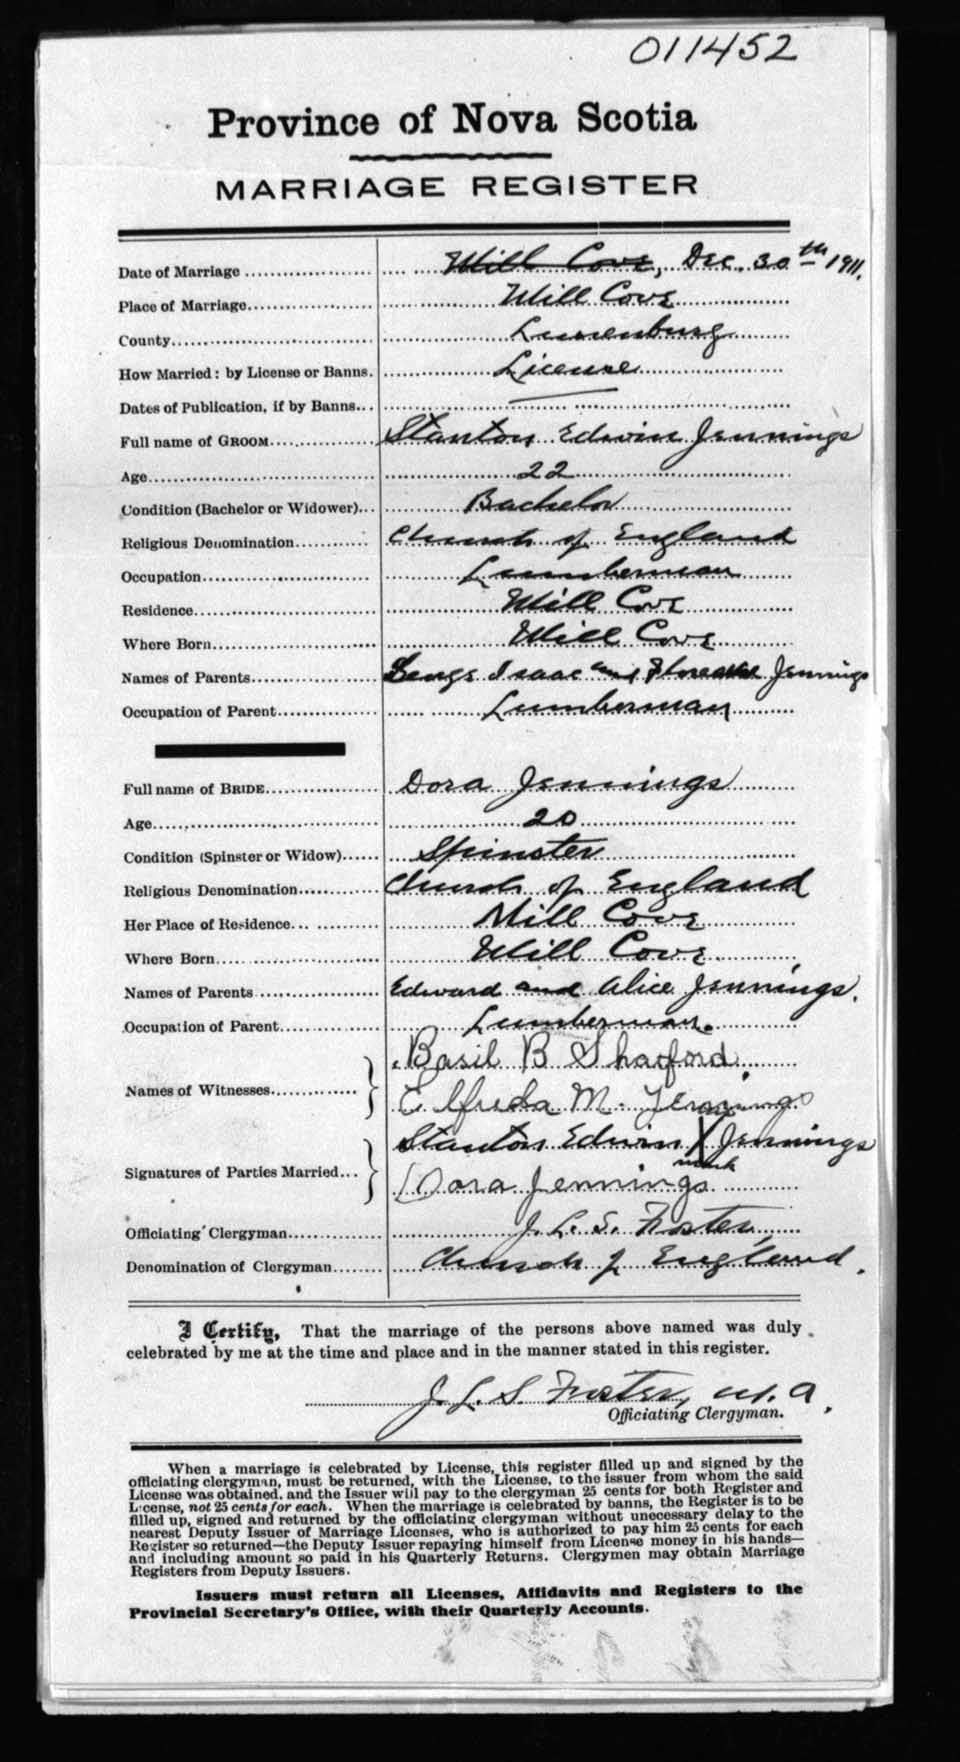 011452
Province of Nova Scotia
MARRIAGE REGISTER
Date of Marriage Mill Cove, Dec. 30th 1911.
Place of Marriage Mill Cove
County Lunenburg
How Married: by License or Banns. License
Dates of Publication, if by Banns
Full name of GROOM Stanton Edwin Jennings
Age 22
Condition (Bachelor or Widower) Bachelor
Religious Denomination Church of England
Occupation Lumberman
Residence Mill Cove
Where Born Mill Cove
Names of Parents Isaac and Jennings
Occupation of Parent Lumberman
Full name of BRIDE Dora Jennings
Age 20
Condition (Spinster or Widow) Spinster
Religious Denomination Church of England
Her Place of Residence Mill Cove
Where Born Mill Cove
Names of Parents Edward and Alice Jennings.
Occupation of Parent Lumberman.
Names of Witnesses Basil B Shatford
Elfreda M. Jennings
Signatures of Parties Married Stanton Edwin X Jennings
mark
Dora Jennings
Officiating Clergyman J. L. S. Foster
Denomination of Clergyman Church of England.
I Certify, That the marriage of the persons above named was duly
celebrated by me at the time and place and in the manner stated in this register.
J. L. S. Foster, M.A.
Officiating Clergyman.
When a marriage is celebrated by License, this register filled up and signed by the
officiating clergyman, must be returned, with the License, to the issuer from whom the said
License was obtained, and the Issuer will pay to the clergyman 25 cents for both Register and
License, not 25 cents for each. When the marriage is celebrated by banns, the Register is to be
filled up, signed and returned by the officiating clergyman without unnecessary delay to the
nearest Deputy Issuer of Marriage Licenses, who is authorized to pay him 25 cents for each
Register so returned—the Deputy Issuer repaying himself from License money in his hands—
and including amount so paid in his Quarterly Returns. Clergymen may obtain Marriage
Registers from Deputy Issuers.
Issuers must return all Licenses, Affidavits and Registers to the
Provincial Secretary's Office, with their Quarterly Accounts.